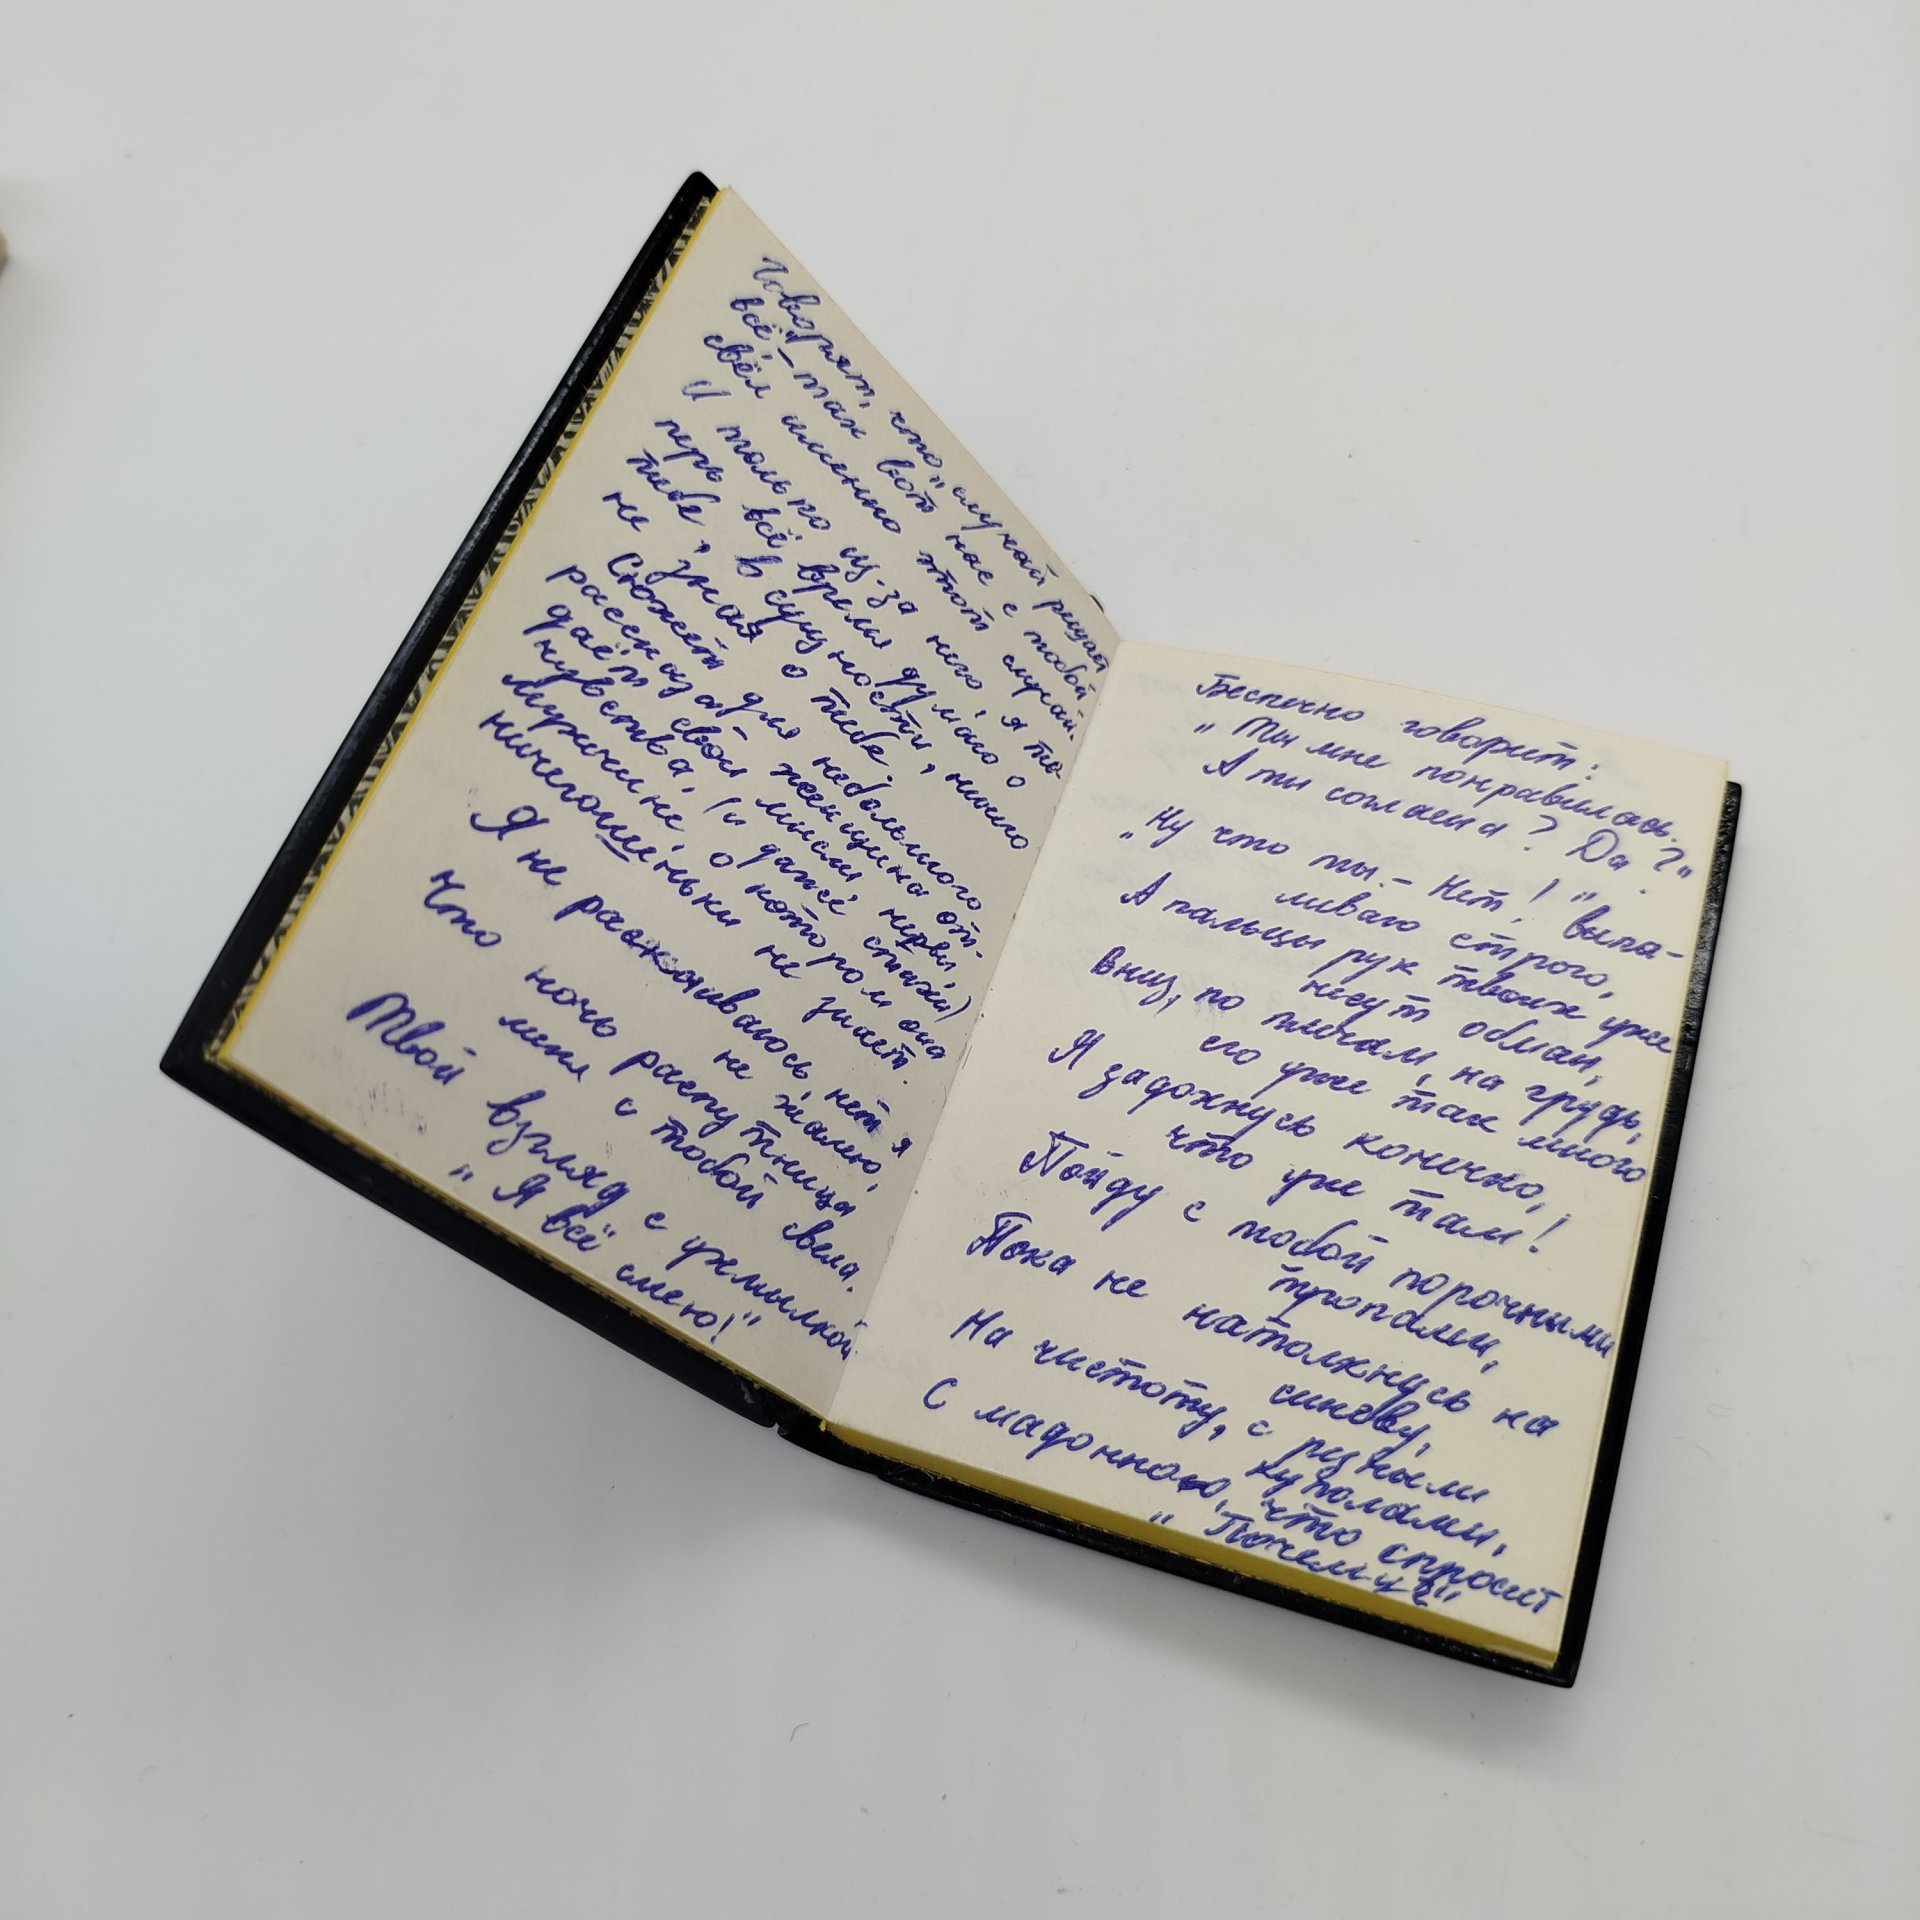 Говорят, что „случай решает
всё" – так вот нас с тобой
свёл именно этот случай.
И только из-за него, я те-
перь всё время думаю о
тебе, в сущности, ничего
не зная о тебе.
Сюжет для небольшого
рассказа: женщина от-
даёт свои мысли, нервы,
чувства, (и даже стихи)
мужчине, о котором она
ничегошеньки не знает.
Я не раскаиваюсь, нет я
не жалею,
Что ночь распутница
меня с тобой свела.
Твой взгляд с ухмылкой
„Я всё"
смею!"
Беспечно говорит:
„Ты мне понравилась.
А ты согласна? Да?"
„Ну что ты. – Нет!" выпа-
ливаю строго,
А пальцы рук твоих уже
несут обман,
Вниз, по плечам, на грудь,
его уже так много
Я задохнусь конечно,
что уже там!
Пойду с тобой порочными
тропами,
Пока не натолкнусь на
синеву,
На чистоту, с резными
куполами,
С мадонною, что спросит
„Почему?"